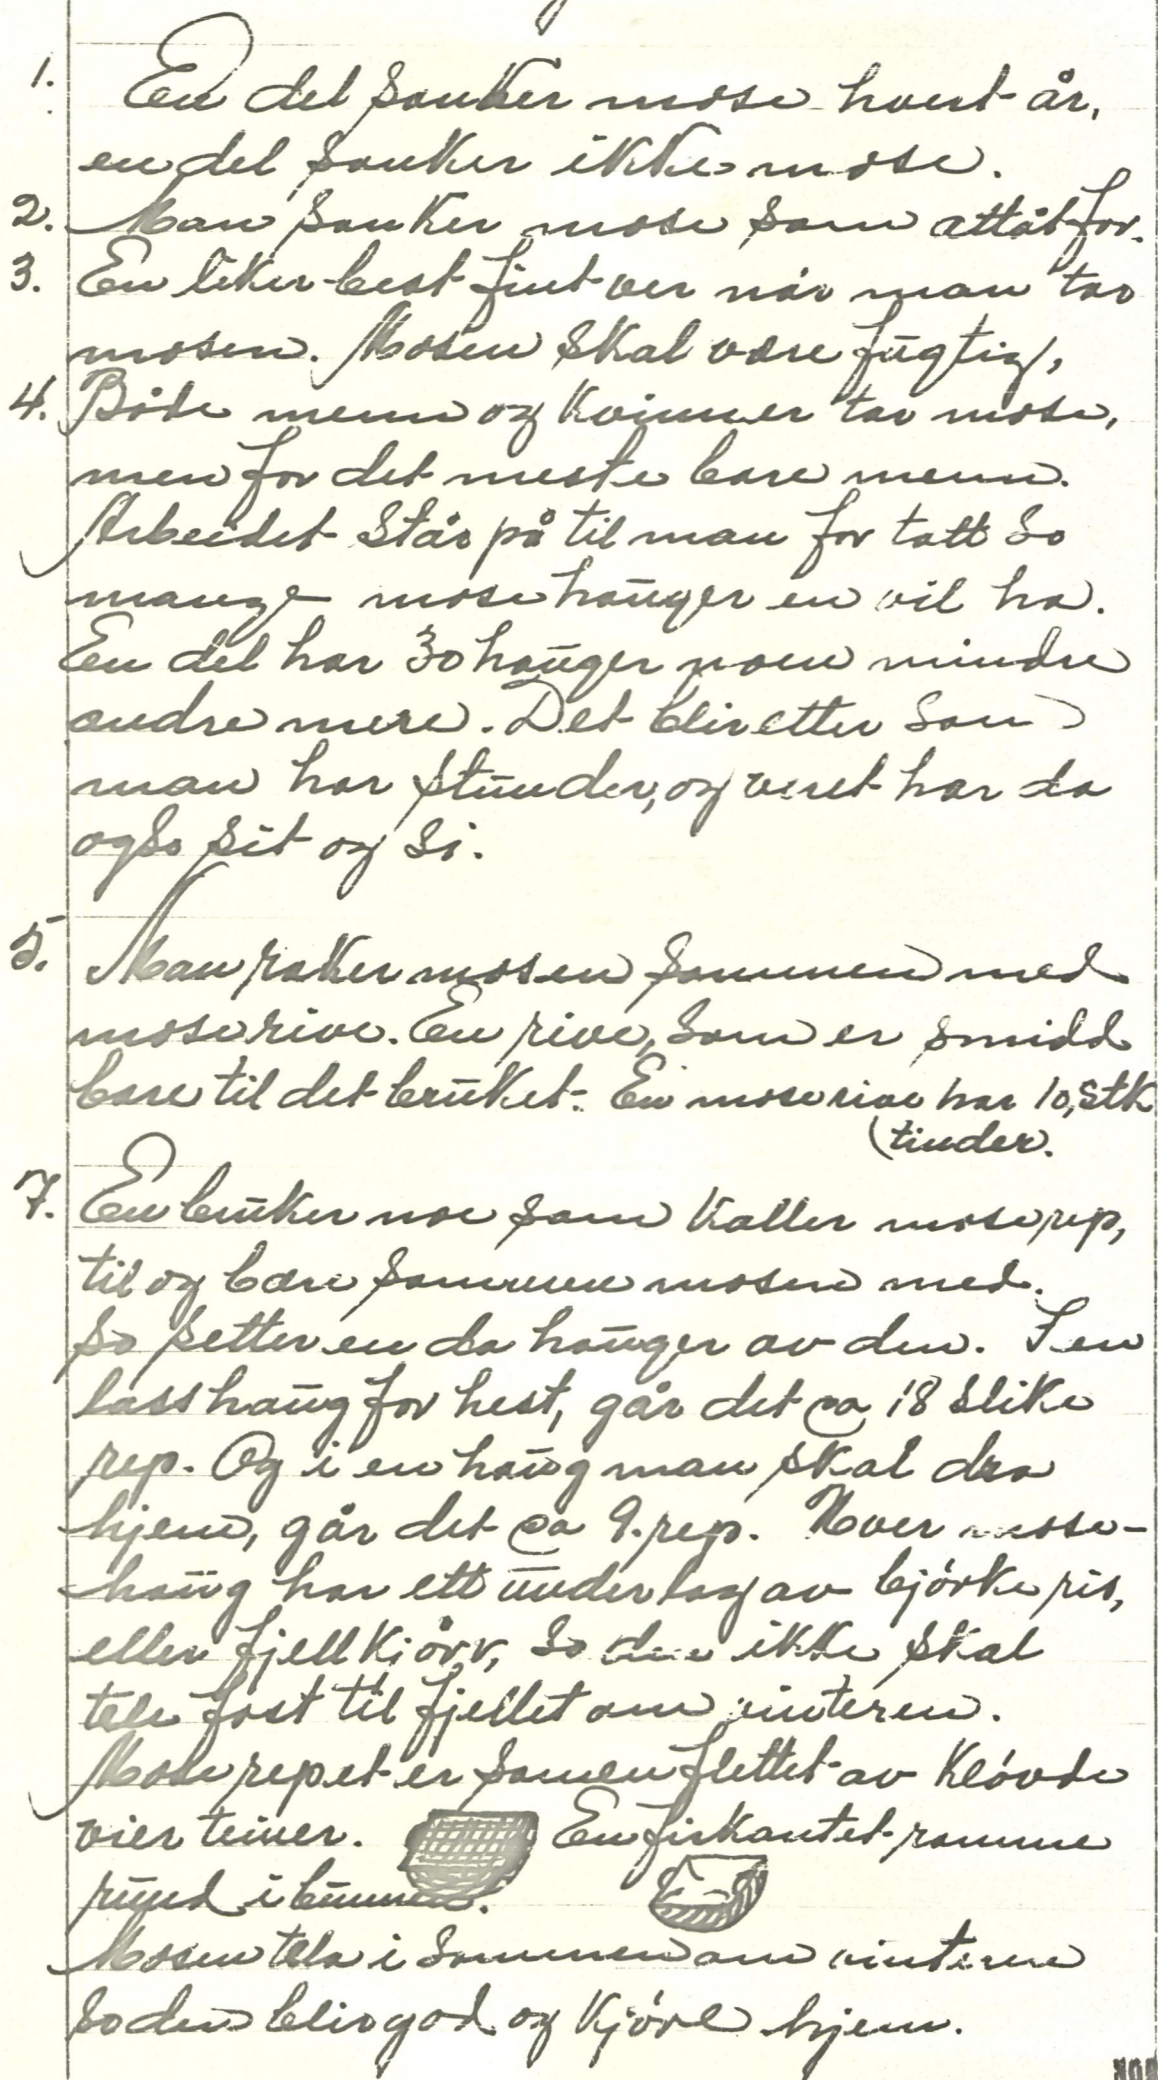 1. En del sanker mose hvert år,
en del sanker ikke mose.
2. Man sanker mose som attåtfor.
3. En liker best fint ver når man tar
mosen. Mosen skal være fugtig,
4. Både menn og kvinner tar mose,
men for det meste bare menn.
Arbeidet står på til man for tatt so
mange mosehauger en vil ha.
En del har 30 hauger noen mindre
andre mere. Det blir etter som
man har stunder, og veret har da
ogso sit og si.
5. Man raker mosen sammen med
moserive. En rive, som er smidd
bare til det bruket. Ei moserive har 10, stk
(tinder.
7. En bruker noe som kaller moserep,
til og bære sammen mosen med.
So setter en da hauger av den. I en
lasshaug for hest, går det ca 18 slike
rep. Og i en haug man skal dra
hjem, går det ca 9. rep. Hver mose-
haug har ett underlag av bjørke ris,
eller fjellkjørr, so den ikke skal
tele fast til fjellet om vinteren.
Moserepet er samenflettet av kløvde
vier teiner. En firkantet ramme
rund i bunnen.
Mosen tela i sammen om vinteren
so den blir god og kjøre hjem.